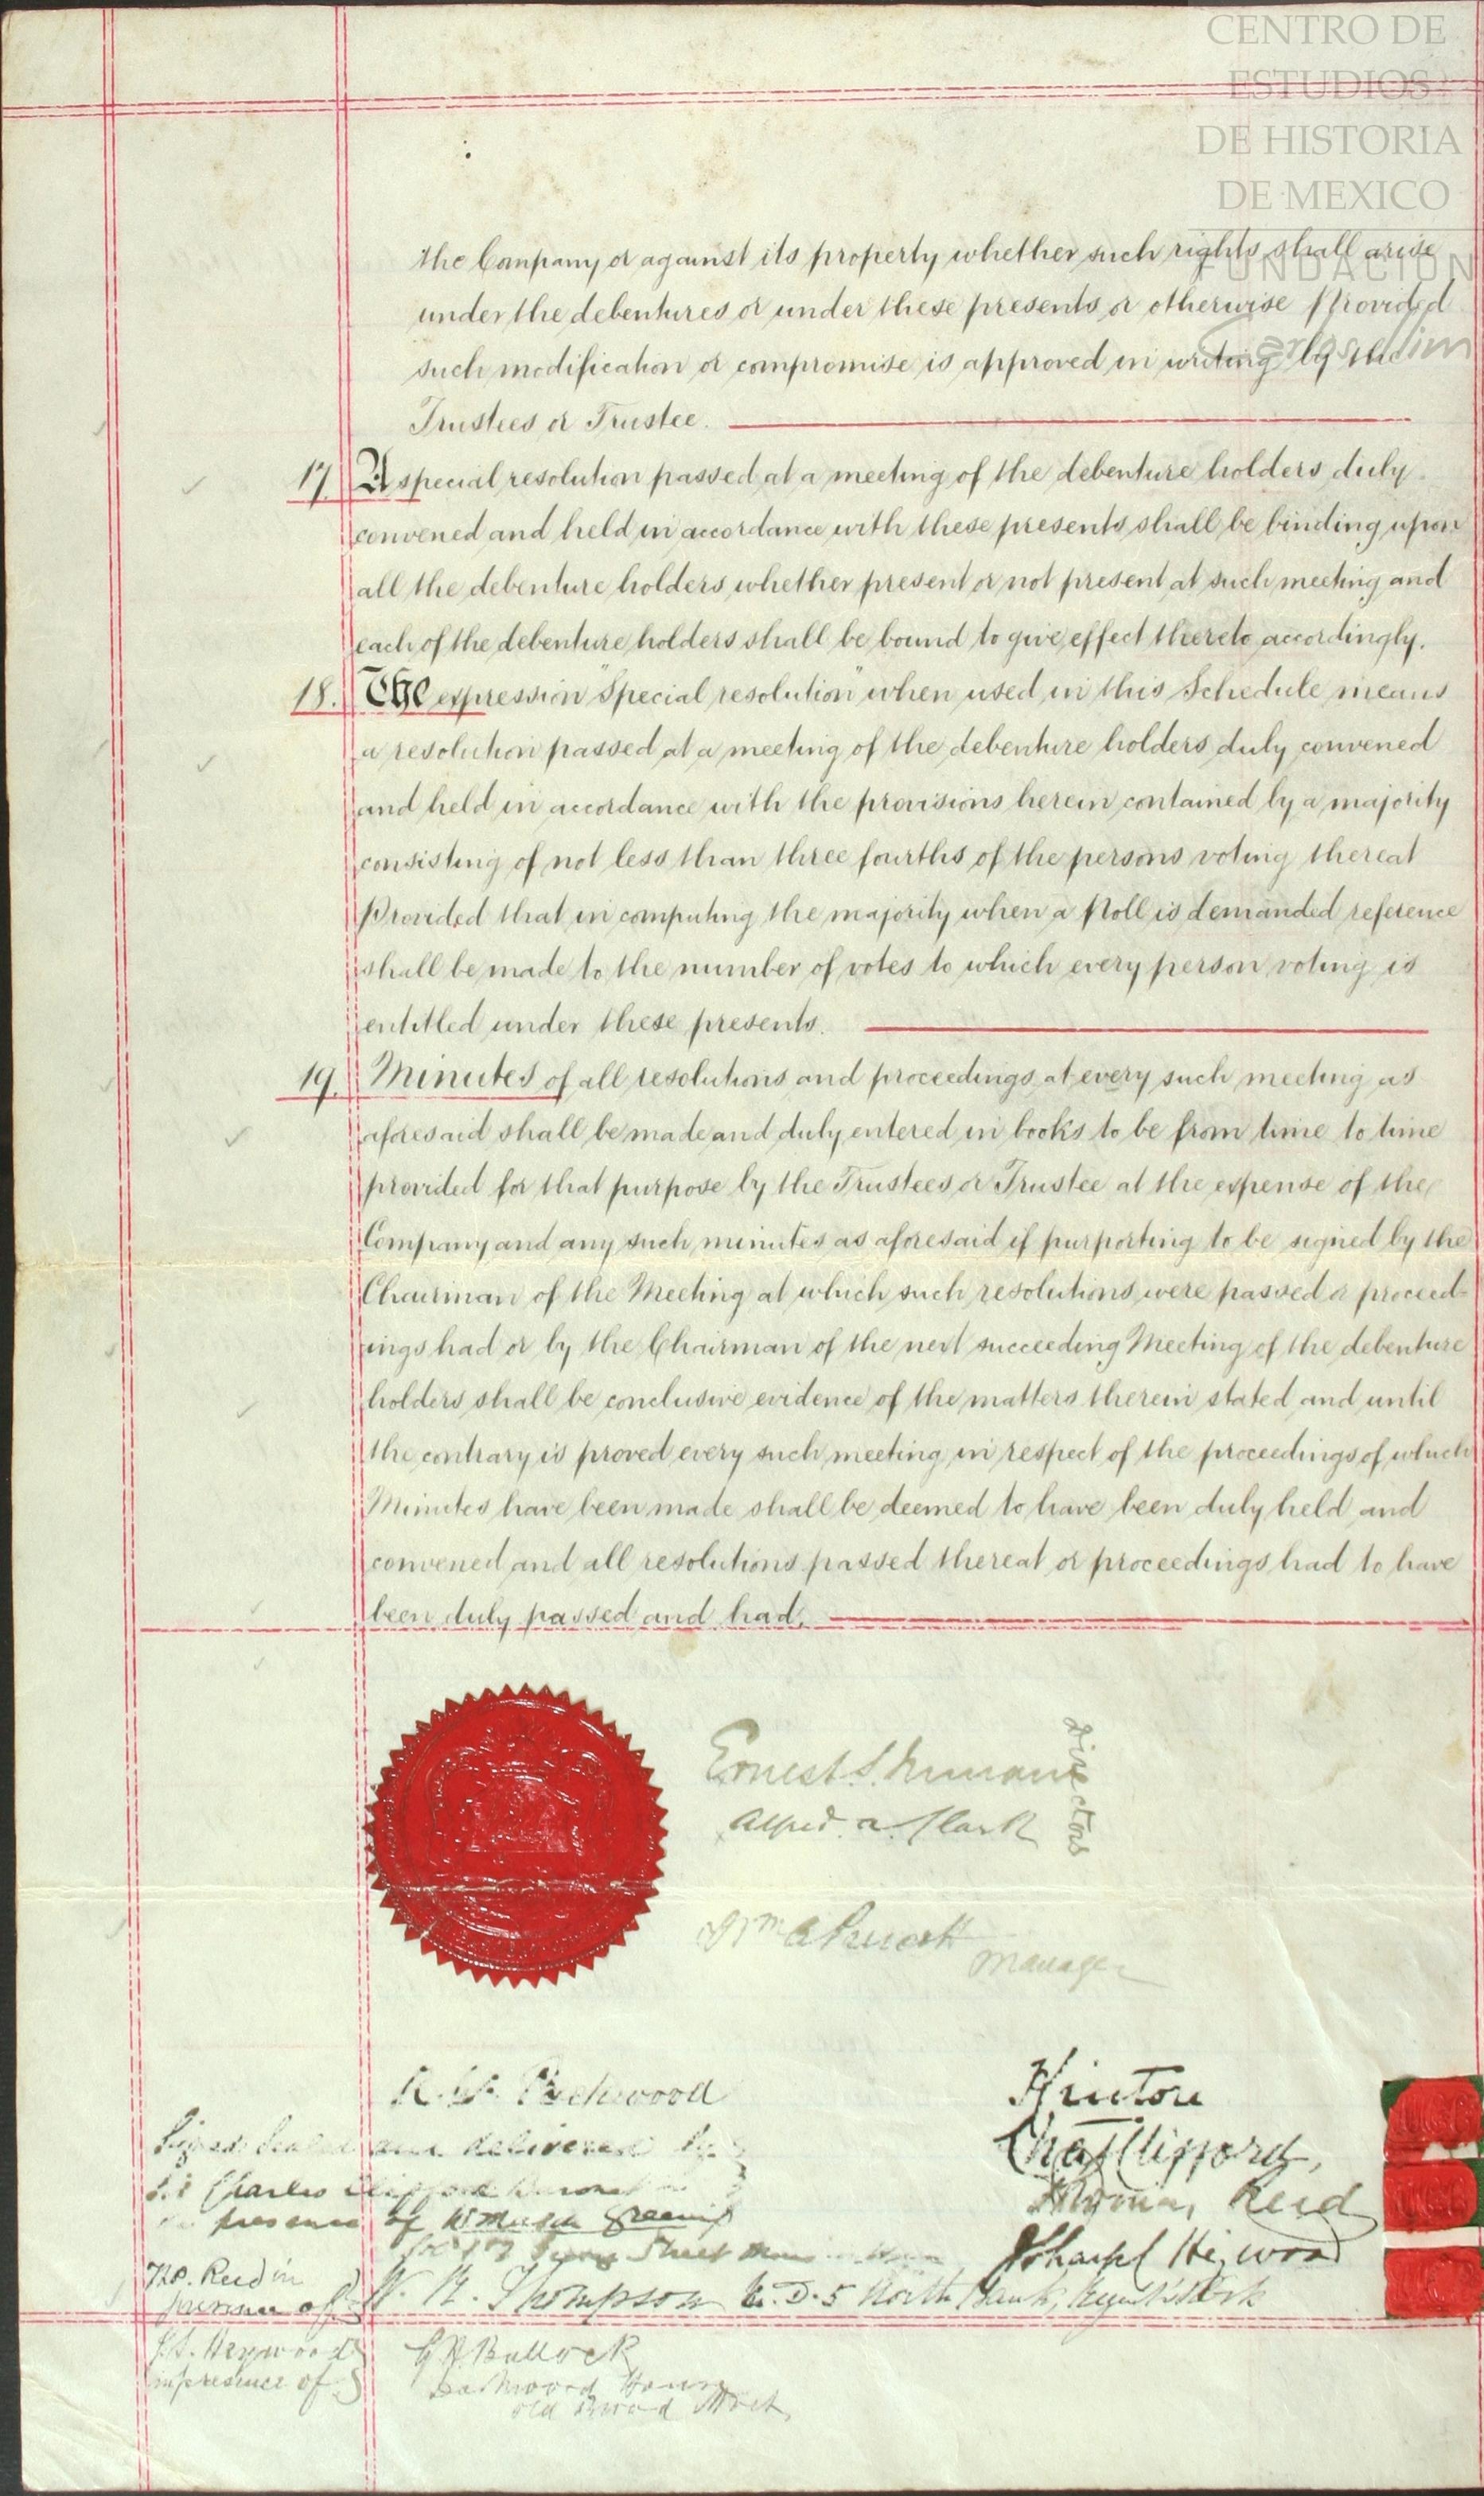 CENTRO DE
ESTUDIOS
DE HISTORIA
DE MEXICO
FUNDACION
Carlos Slim
the Company or against its property whether such rights shall arise
under the debentures or under these presents or otherwise Provided
such modification or compromise is approved in writing by the
Trustees or Trustee.
17. A special resolution passed at a meeting of the debenture holders duly
convened and held in accordance with these presents shall be binding upon
all the debenture holders whether present or not present at such meeting and
each of the debenture holders shall be bound to give effect thereto accordingly.
18. The expression "Special resolution" when used in this Schedule means
a resolution passed at a meeting of the debenture holders duly convened
and held in accordance with the provisions herein contained by a majority
consisting of not less than three fourths of the persons voting thereat
Provided that in computing the majority when a Poll is demanded reference
shall be made to the number of votes to which every person voting is
entitled under these presents.
19. Minutes of all resolutions and proceedings at every such meeting as
aforesaid shall be made and duly entered in books to be from time to time
provided for that purpose by the Trustees or Trustee at the expense of the
Company and any such minutes as aforesaid if purporting to be signed by the
Chairman of the Meeting at which such resolutions were passed or proceed-
ings had or by the Chairman of the next succeeding Meeting of the debenture
holders shall be conclusive evidence of the matters therein stated and until
the contrary is proved every such meeting in respect of the proceedings of which
Minutes have been made shall be deemed to have been duly held and
convened and all resolutions passed thereat or proceedings had to have
been duly passed and had.
Ernest S.
Alfred a. Clark
Directors
Wm
Manager
Kintore
Chas Clifford,
Reid
Heywood
Signed Sealed and delivered by
Sir Charles Clifford Baronet in
presence of
Street
Reid in
presence of
W. H. Thompson M.D. 5 North Bank, Regent's Park
J.S. Heywood
in presence of
G H Bullock
Dashwood House
Old Broad Street